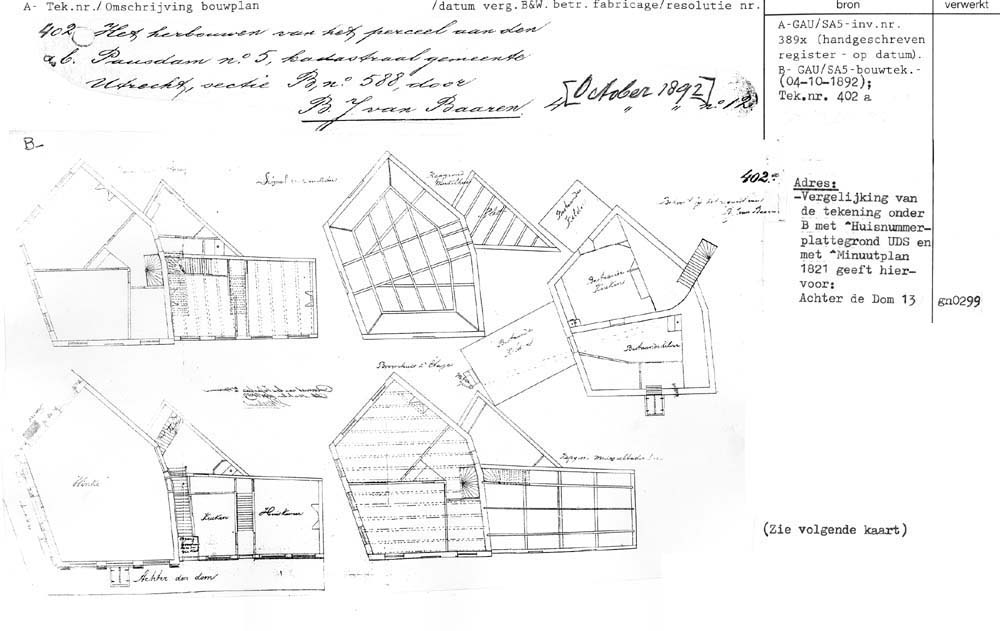 A- Tek.nr./Omschrijving bouwplan /datum verg.B&W.betr.fabricage/resolutie nr. bron verwerkt
402 Het herbouwen van het perceel aan den
a,b. Pausdam no 5, kadastraal gemeente
Utrecht, sectie B, no 588, door
B. J. van Baaren.
4 [October 1892] no 12.
A-GAU/SA5-inv.nr.
389x (handgeschreven
register - op datum).
B- GAU/SA5-bouwtek.-
(04-10-1892);
Tek.nr. 402 a
B-
402a
Adres:
-Vergelijking van
de tekening onder
B met "Huisnummer-
plattegrond UDS en
met "Minuutplan
1821 geeft hier-
voor:
Achter de Dom 13 gn0299
Bestaande
Kelder
Bestaande
Keuken
Bestaande
Winkel
Keuken
Huiskamer
Achter den dom
(Zie volgende kaart)